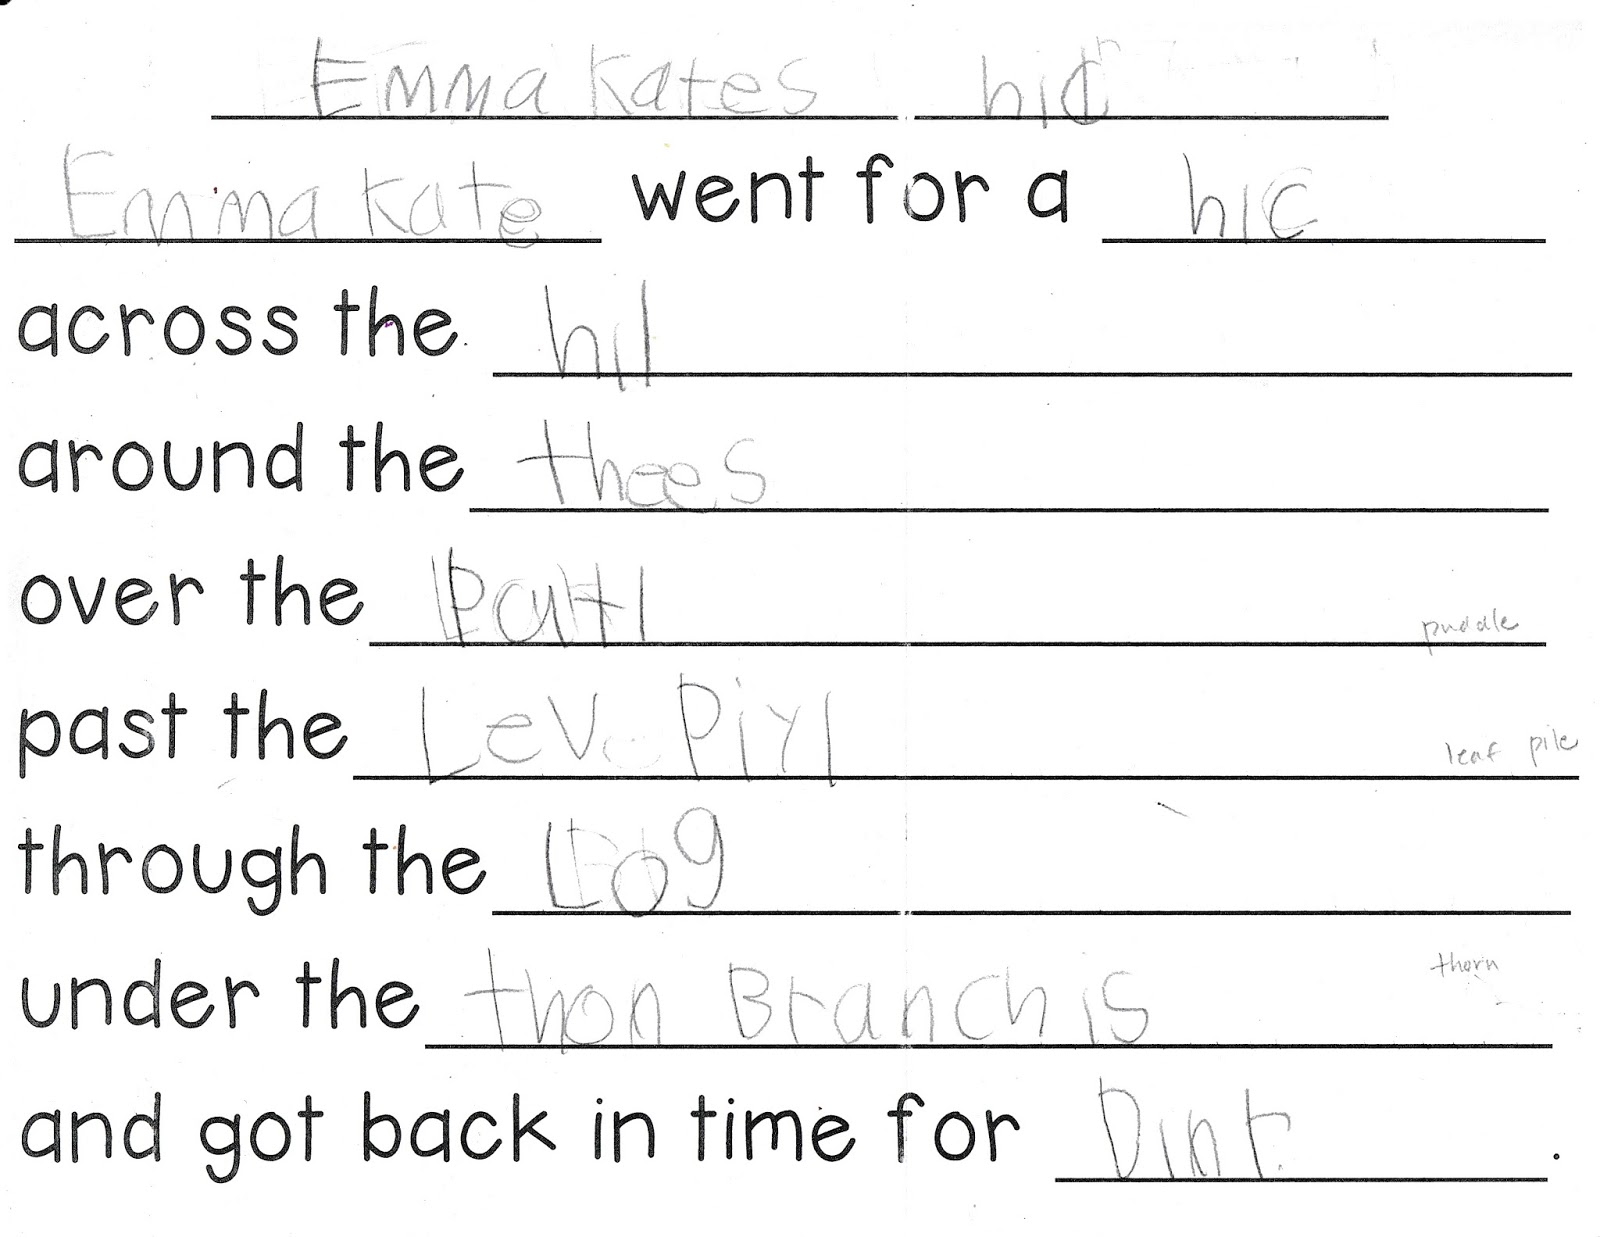 Emma Kates hic
Emma Kate went for a hic
across the hil
around the thees
over the patl puddle
past the Lev Piyl leaf pile
through the Log
under the thon Branchis thorn
and got back in time for Dinr.